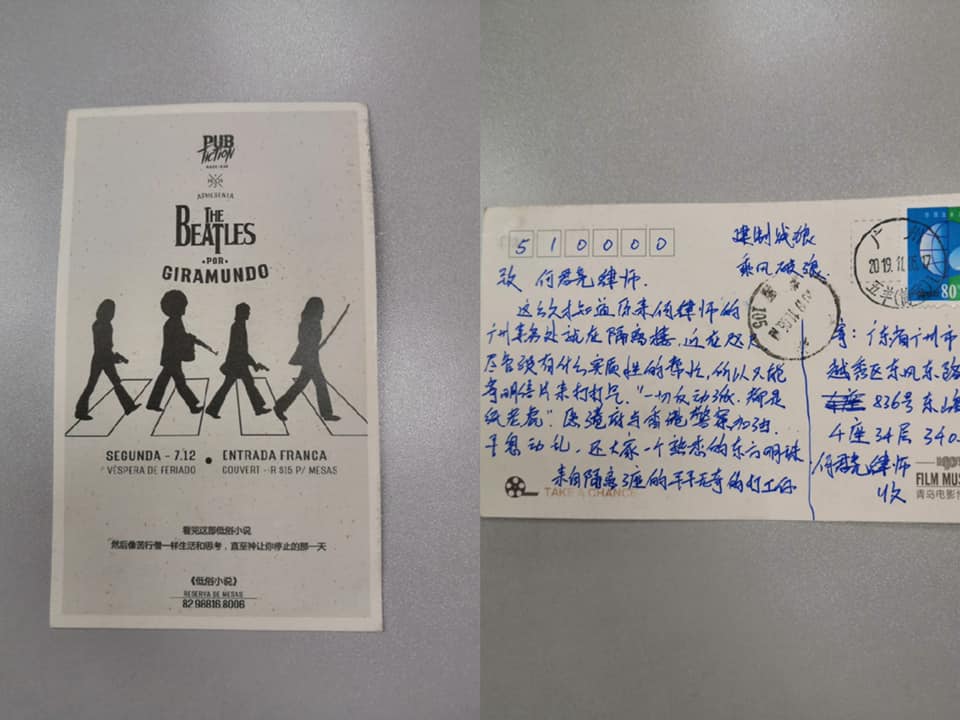 PUB
fiction
APRESENTA
THE
BEATLES
• POR •
GIRAMUNDO
SEGUNDA - 7.12
VÉSPERA DE FERIADO
•
ENTRADA FRANCA
COUVERT - R $15 P/ MESAS
看完这部低俗小说
然后像苦行僧一样生活和思考，直至神让你停止的那一天
《低俗小说》
RESERVA DE MESAS
82 98816.8006
510000
乘风破浪
致 何君尧律师
这次才知道原来何律师的
广州事务处就在隔离楼，近在
尽管没有什么实质性的帮忙，所以只能
寄明信片来打打气。"一切反动派，都是
纸老虎"。愿港府与香港警察加油，
平息动乱，还大家一个熟悉的东方明珠
来自隔离3座的平平无奇的打工仔
TAKE A CHANCE
广州
2019.11.05.17
80
寄：广东省广州市
越秀区东风东路
836号东
4座34层 340
何君尧律师
收
FILM MUS
青岛电影